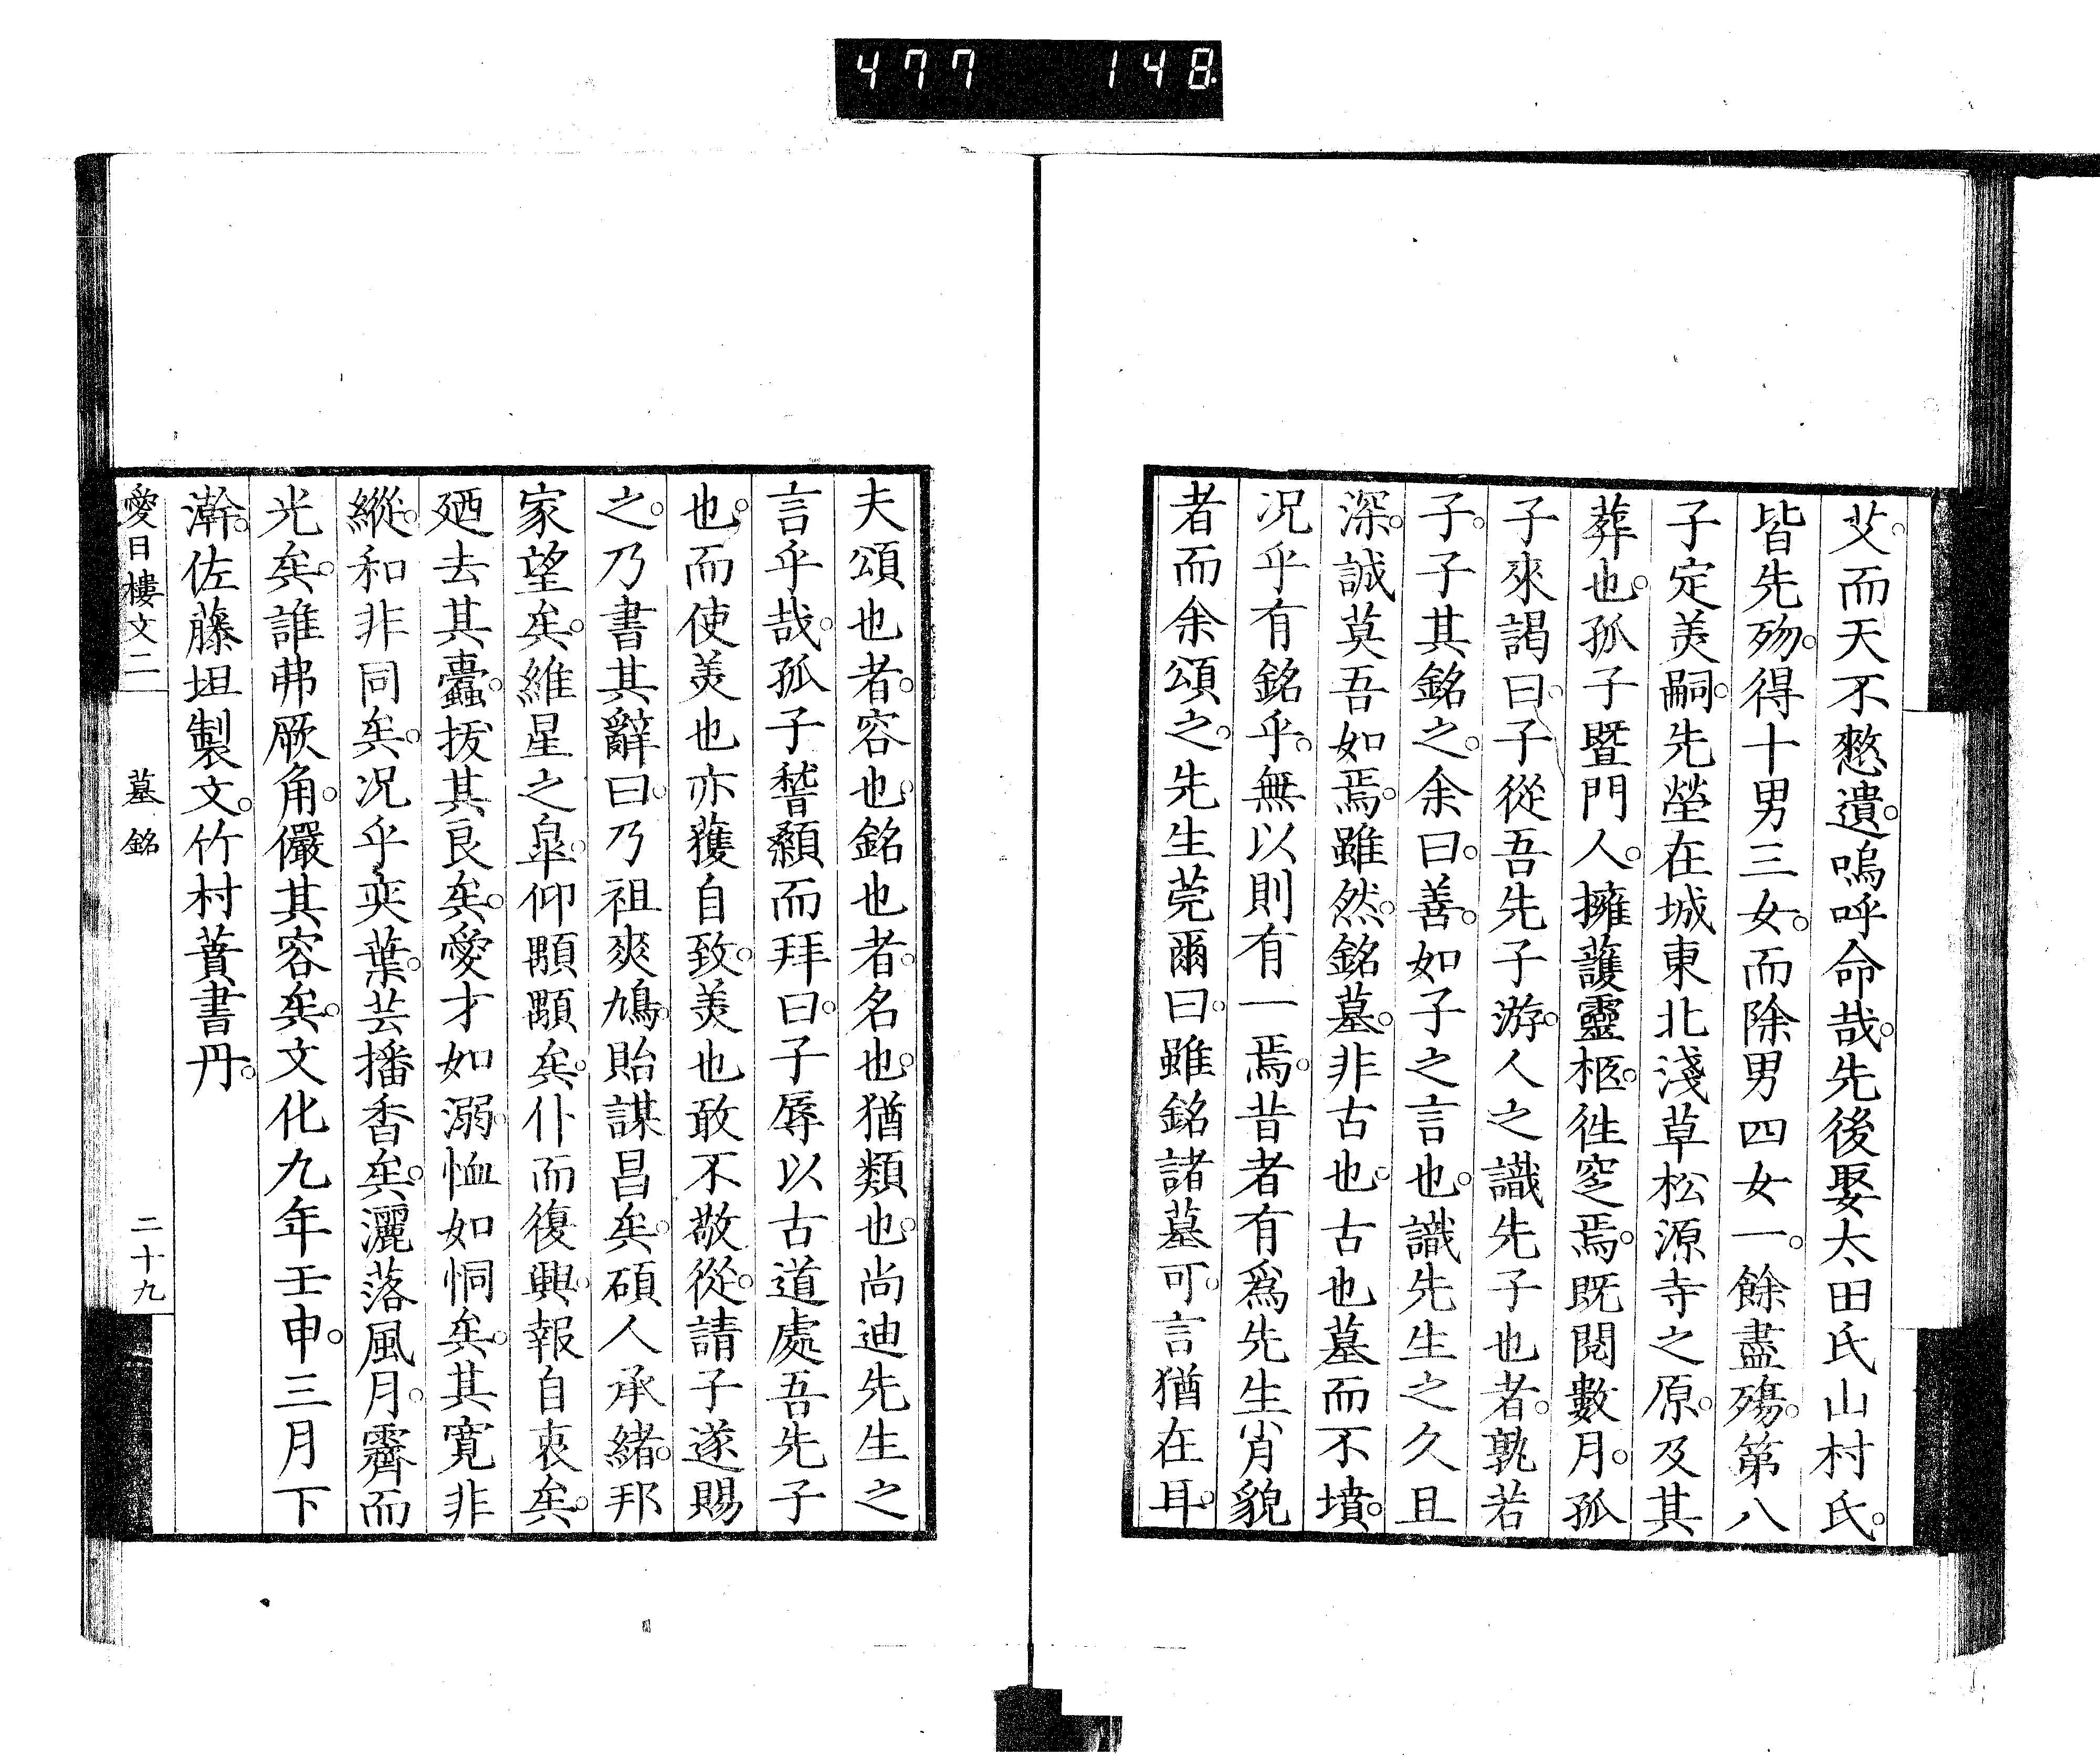 477 148
艾。而天不憖遺。嗚呼命哉。先後娶太田氏山村氏。
皆先歾。得十男三女。而除男四女一。餘盡殤。第八
子定美嗣。先塋在城東北淺草松源寺之原。及其
葬也。孤子曁門人。擁護靈柩。徃窆焉。既閲數月。孤
子來謁曰。子從吾先子游。人之識先子也者。孰若
子。子其銘之。余曰。善。如子之言也。識先生之久且
深。誠莫吾如焉。雖然。銘墓。非古也。古也墓而不墳。
况乎有銘乎。無以則有一焉。昔者有爲先生肖貌
者而余頌之。先生莞爾曰。雖銘諸墓可。言猶在耳。
夫頌也者。容也。銘也者。名也。猶類也。尚迪先生之
言乎哉。孤子稽顙而拜曰。子辱以古道處吾先子
也。而使美也亦獲自致。美也敢不敬從。請子遂賜
之。乃書其辭曰。乃祖爽鳩。貽謀昌矣。碩人承緒。邦
家望矣。維星之皐。仰顒顒矣。仆而復興。報自衷矣。
廼去其蠹。拔其良矣。愛才如溺。恤如恫矣。其寛非
縱。和非同矣。况乎奕葉。芸播香矣。灑落風月。霽而
光矣。誰弗厥角。儼其容矣。文化九年壬申。三月下
澣。佐藤坦製文。竹村蕡書丹。
愛日樓文二 墓銘 二十九